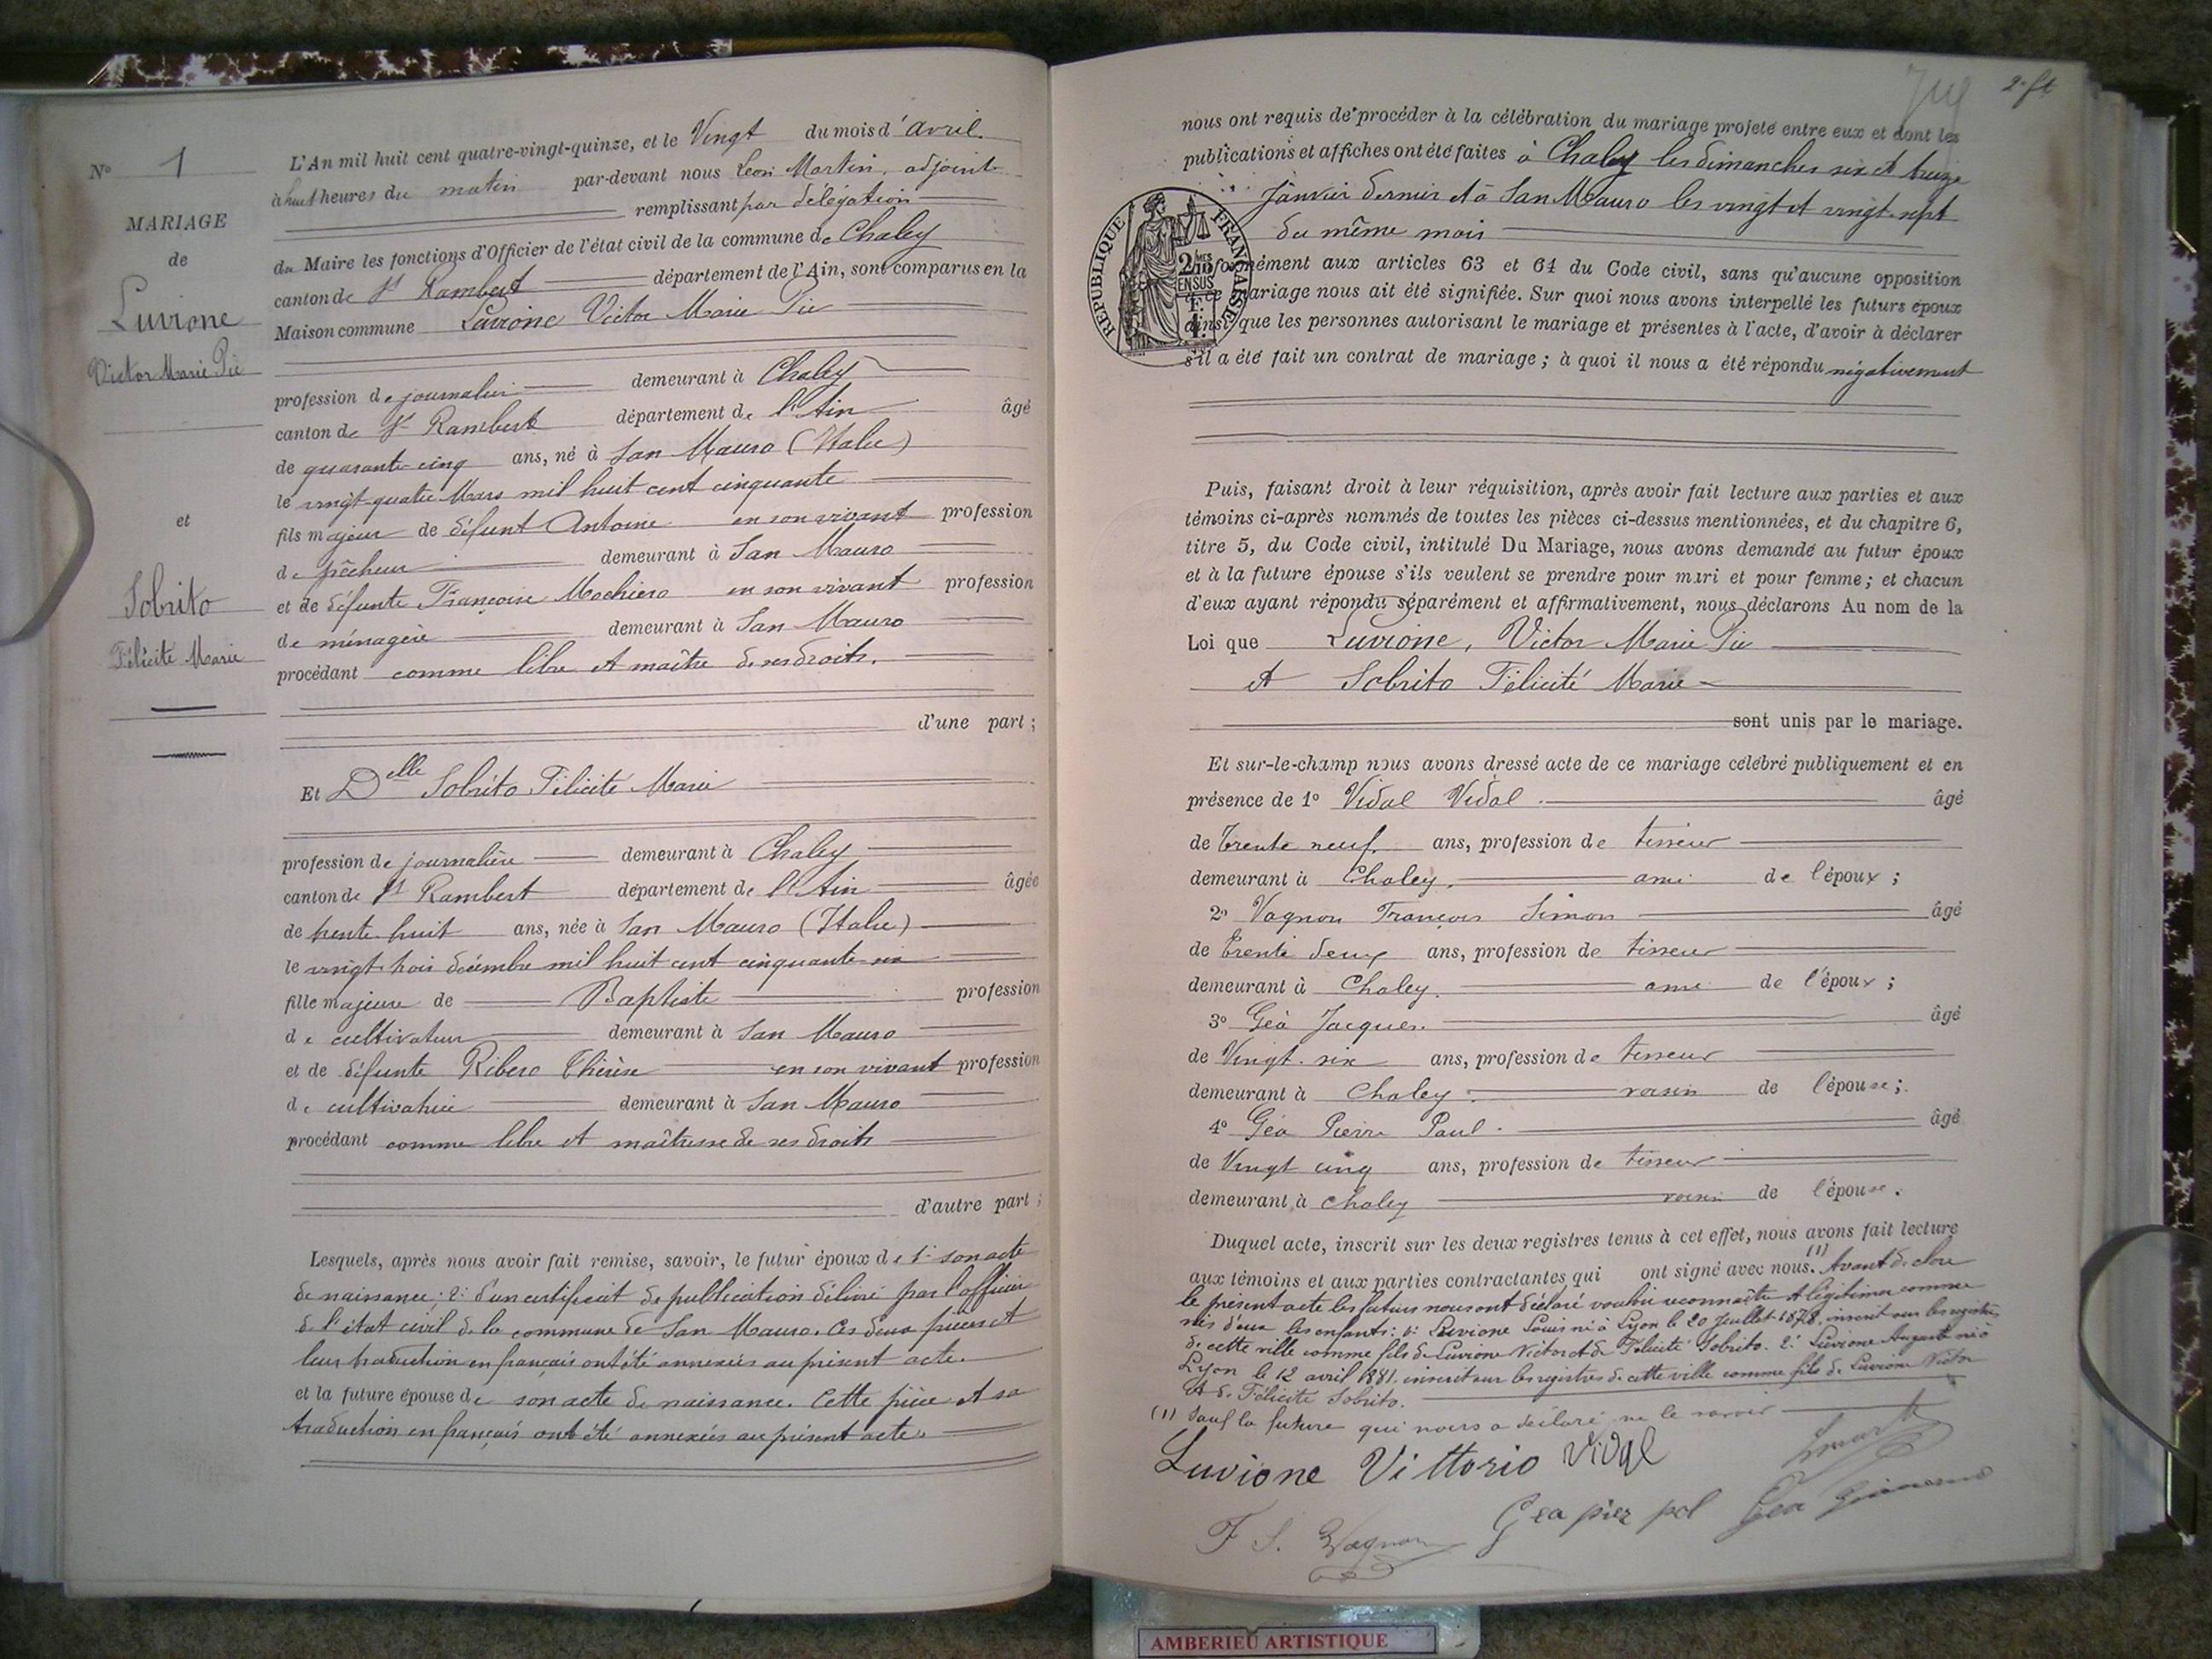 N° 1
MARIAGE
de
Luvione
Victor Marie Pie
et
Sobrito
Félicité Marie
L'An mil huit cent quatre-vingt-quinze, et le Vingt du mois d'avril
à huit heures du matin par-devant nous Léon Martin, adjoint
remplissant par délégation
du Maire les fonctions d'Officier de l'état civil de la commune de Chaley
canton de St Rambert département de l'Ain, sont comparus en la
Maison commune Luvione Victor Marie Pie
profession de journalier demeurant à Chaley
canton de St Rambert département de l'Ain âgé
de quarante-cinq ans, né à San Mauro (Italie)
le vingt-quatre Mars mil huit cent cinquante
fils majeur de défunt Antoine en son vivant profession
de pêcheur demeurant à San Mauro
et de défunte Françoise Mochiero en son vivant profession
de ménagère demeurant à San Mauro
procédant comme libre et maître de ses droits.
d'une part ;
Et Delle Sobrito Félicité Marie
profession de journalière demeurant à Chaley
canton de St Rambert département de l'Ain âgée
de trente-huit ans, née à San Mauro (Italie)
le vingt-trois décembre mil huit cent cinquante-six
fille majeure de Baptiste profession
de cultivateur demeurant à San Mauro
et de défunte Ribero Thérèse en son vivant profession
de cultivatrice demeurant à San Mauro
procédant comme libre et maîtresse de ses droits
d'autre part ;
Lesquels, après nous avoir fait remise, savoir, le futur époux de 1° son acte
de naissance ; 2° d'un certificat de publication délivré par l'officier
de l'état civil de la commune de San Mauro. Ces deux pièces et
leur traduction en français ont été annexées au présent acte.
et la future épouse de son acte de naissance. Cette pièce et sa
traduction en français ont été annexées au présent acte.
nous ont requis de procéder à la célébration du mariage projeté entre eux et dont les
publications et affiches ont été faites à Chaley les dimanches six et treize
Janvier dernier et à San Mauro les vingt et vingt-sept
du même mois
RÉPUBLIQUE FRANÇAISE
2/10 MES EN SUS
conformément aux articles 63 et 64 du Code civil, sans qu'aucune opposition
à ce mariage nous ait été signifiée. Sur quoi nous avons interpellé les futurs époux
ainsi que les personnes autorisant le mariage et présentes à l'acte, d'avoir à déclarer
s'il a été fait un contrat de mariage ; à quoi il nous a été répondu négativement
Puis, faisant droit à leur réquisition, après avoir fait lecture aux parties et aux
témoins ci-après nommés de toutes les pièces ci-dessus mentionnées, et du chapitre 6,
titre 5, du Code civil, intitulé Du Mariage, nous avons demandé au futur époux
et à la future épouse s'ils veulent se prendre pour mari et pour femme ; et chacun
d'eux ayant répondu séparément et affirmativement, nous déclarons Au nom de la
Loi que Luvione, Victor Marie Pie
et Sobrito Félicité Marie
sont unis par le mariage.
Et sur-le-champ nous avons dressé acte de ce mariage célébré publiquement et en
présence de 1° Vidal Vidal âgé
de Trente neuf ans, profession de tisseur
demeurant à Chaley. ami de l'époux ;
2° Vagnon François Simon âgé
de Trente deux ans, profession de tisseur
demeurant à Chaley. ami de l'époux ;
3° Géa Jacques. âgé
de Vingt-six ans, profession de tisseur
demeurant à Chaley. voisin de l'épouse ;
4° Géa Pierre Paul. âgé
de Vingt cinq ans, profession de tisseur
demeurant à Chaley voisin de l'épouse.
Duquel acte, inscrit sur les deux registres tenus à cet effet, nous avons fait lecture
aux témoins et aux parties contractantes qui ont signé avec nous. (1) Avant de clore
le présent acte les futurs nous ont déclaré vouloir reconnaître et légitimer comme
nés d'eux les enfants : 1° Luvione Louis né à Lyon le 20 Juillet 1878, inscrit sur les registres
de cette ville comme fils de Luvione Victor et de Félicité Sobrito. 2° Luvione Auguste né à
Lyon le 12 avril 1881. inscrit sur les registres de cette ville comme fils de Luvione Victor
et de Félicité Sobrito.
(1) Sauf la future qui nous a déclaré ne le savoir
Luvione Vittorio Vidal
F S. Vagnon Gea pier pol Gea Giacomo
AMBERIEU ARTISTIQUE